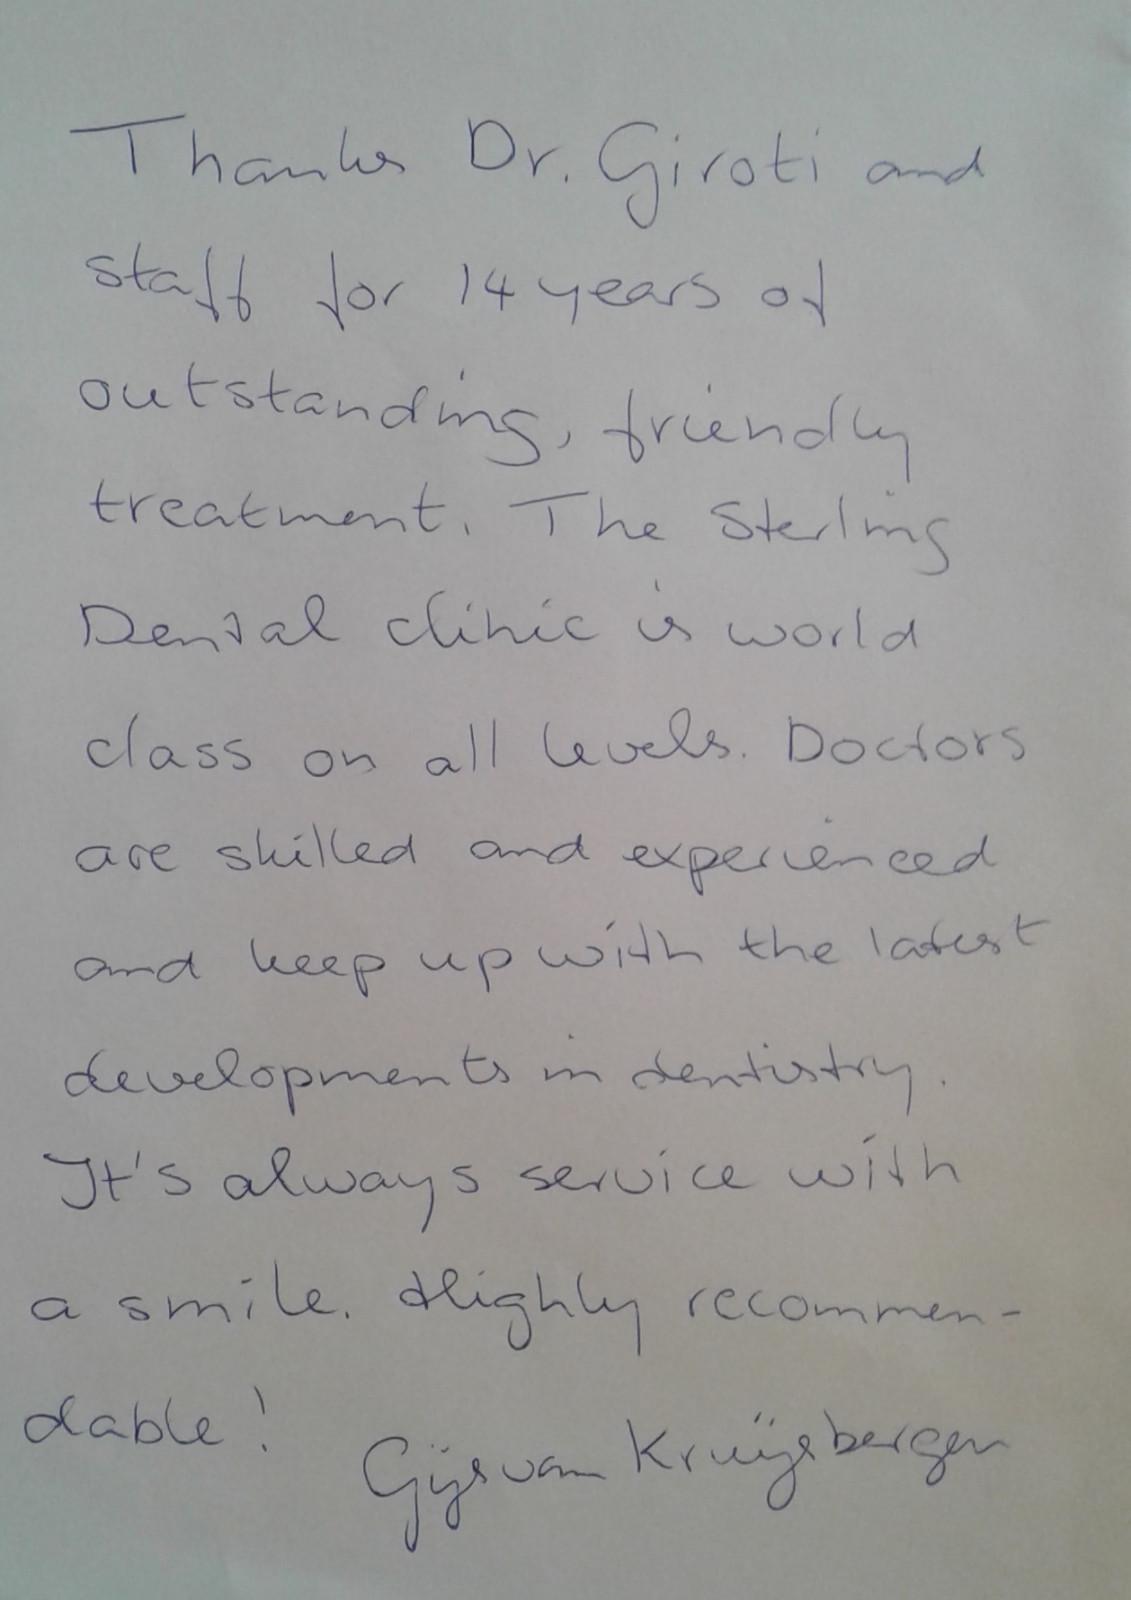 Thanks Dr. Giroti and
staff for 14 years of
outstanding, friendly
treatment. The Sterling
Dental clinic is world
class on all levels. Doctors
are skilled and experienced
and keep up with the latest
developments in dentistry.
It's always service with
a smile. Highly recommen-
dable!
Gijs van Kruijsbergen